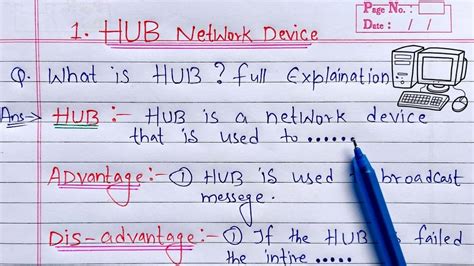 Page No.:
Date: / /
1. HUB Network Device
Q. What is HUB? full Explaination
Ans→ HUB :- HUB is a network device
that is used to ......
Advantage:- ① HUB is used broadcast
messege.
Dis-advantage:- ① If the HUB is failed
the intire .....